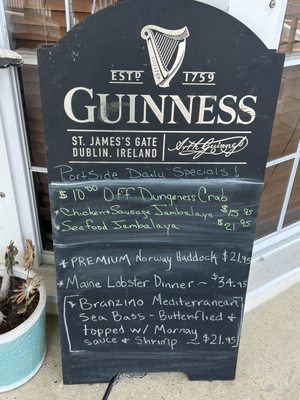 GUINNESS
ESTD 1759
GUINNESS
ST. JAMES'S GATE
DUBLIN, IRELAND
Arth Guinness
PortSide Daily Specials!
$10.00 OFF Dungeness Crab
* Chicken & Sausage Jambalaya $15.95
* Seafood Jambalaya $21.95
* PREMIUM Norway Haddock $21.95
* Maine Lobster Dinner ~ $34.95
* Branzino Mediterranean
Sea Bass - Butterflied &
topped w/ Mornay
sauce & Shrimp ~ $21.95